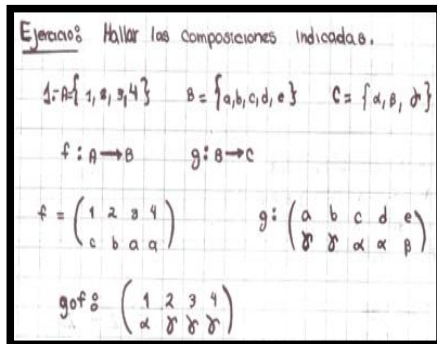 Ejercicio: Hallar las composiciones indicadas.
1.- A={1, 2, 3, 4} B = {a, b, c, d, e} C = {α, β, γ}
f : A → B g : B → C
f = ( 1 2 3 4 g: ( a b c d e
c b a a ) γ γ α α β )
gof: ( 1 2 3 4
α γ γ γ )